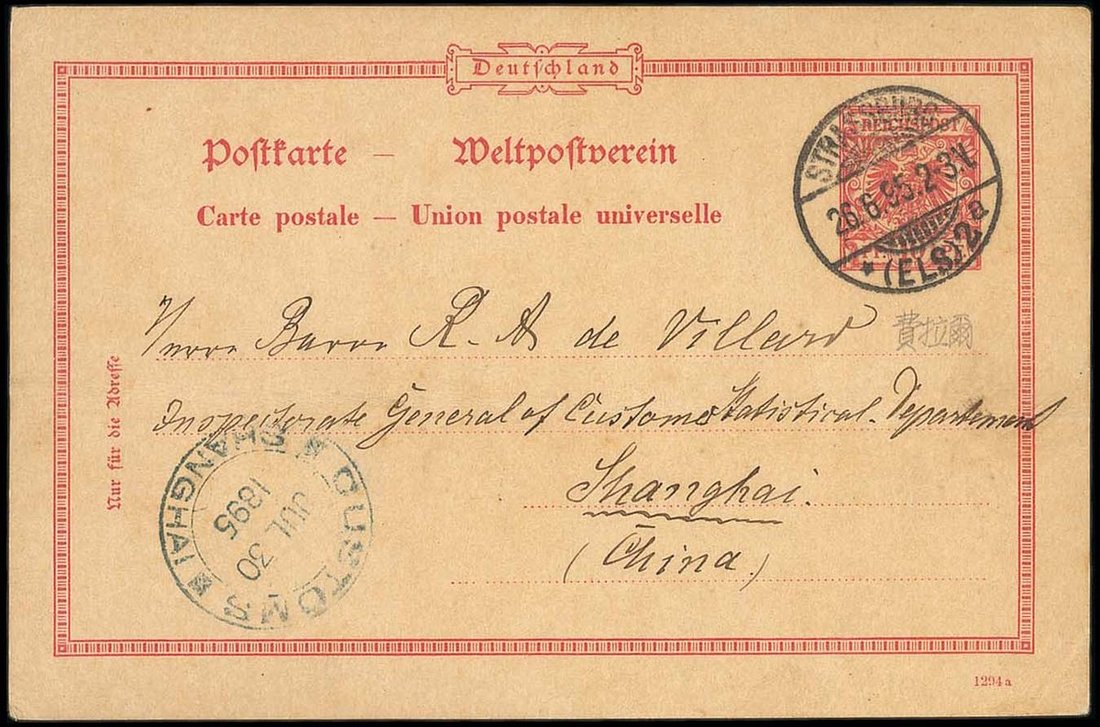 Deutschland
Postkarte — Weltpostverein
Carte postale — Union postale universelle
STRASSBURG
REICHSPOST
26.6.95.2-3N.
* (ELS) 2a
Herrn Baron R. A. de Villard 費拉爾
Inspectorate General of Customs Statistical Departement
Shanghai.
(China.)
Nur für die Adresse
CUSTOMS
SHANGHAI
JUL 30
1895
1294 a